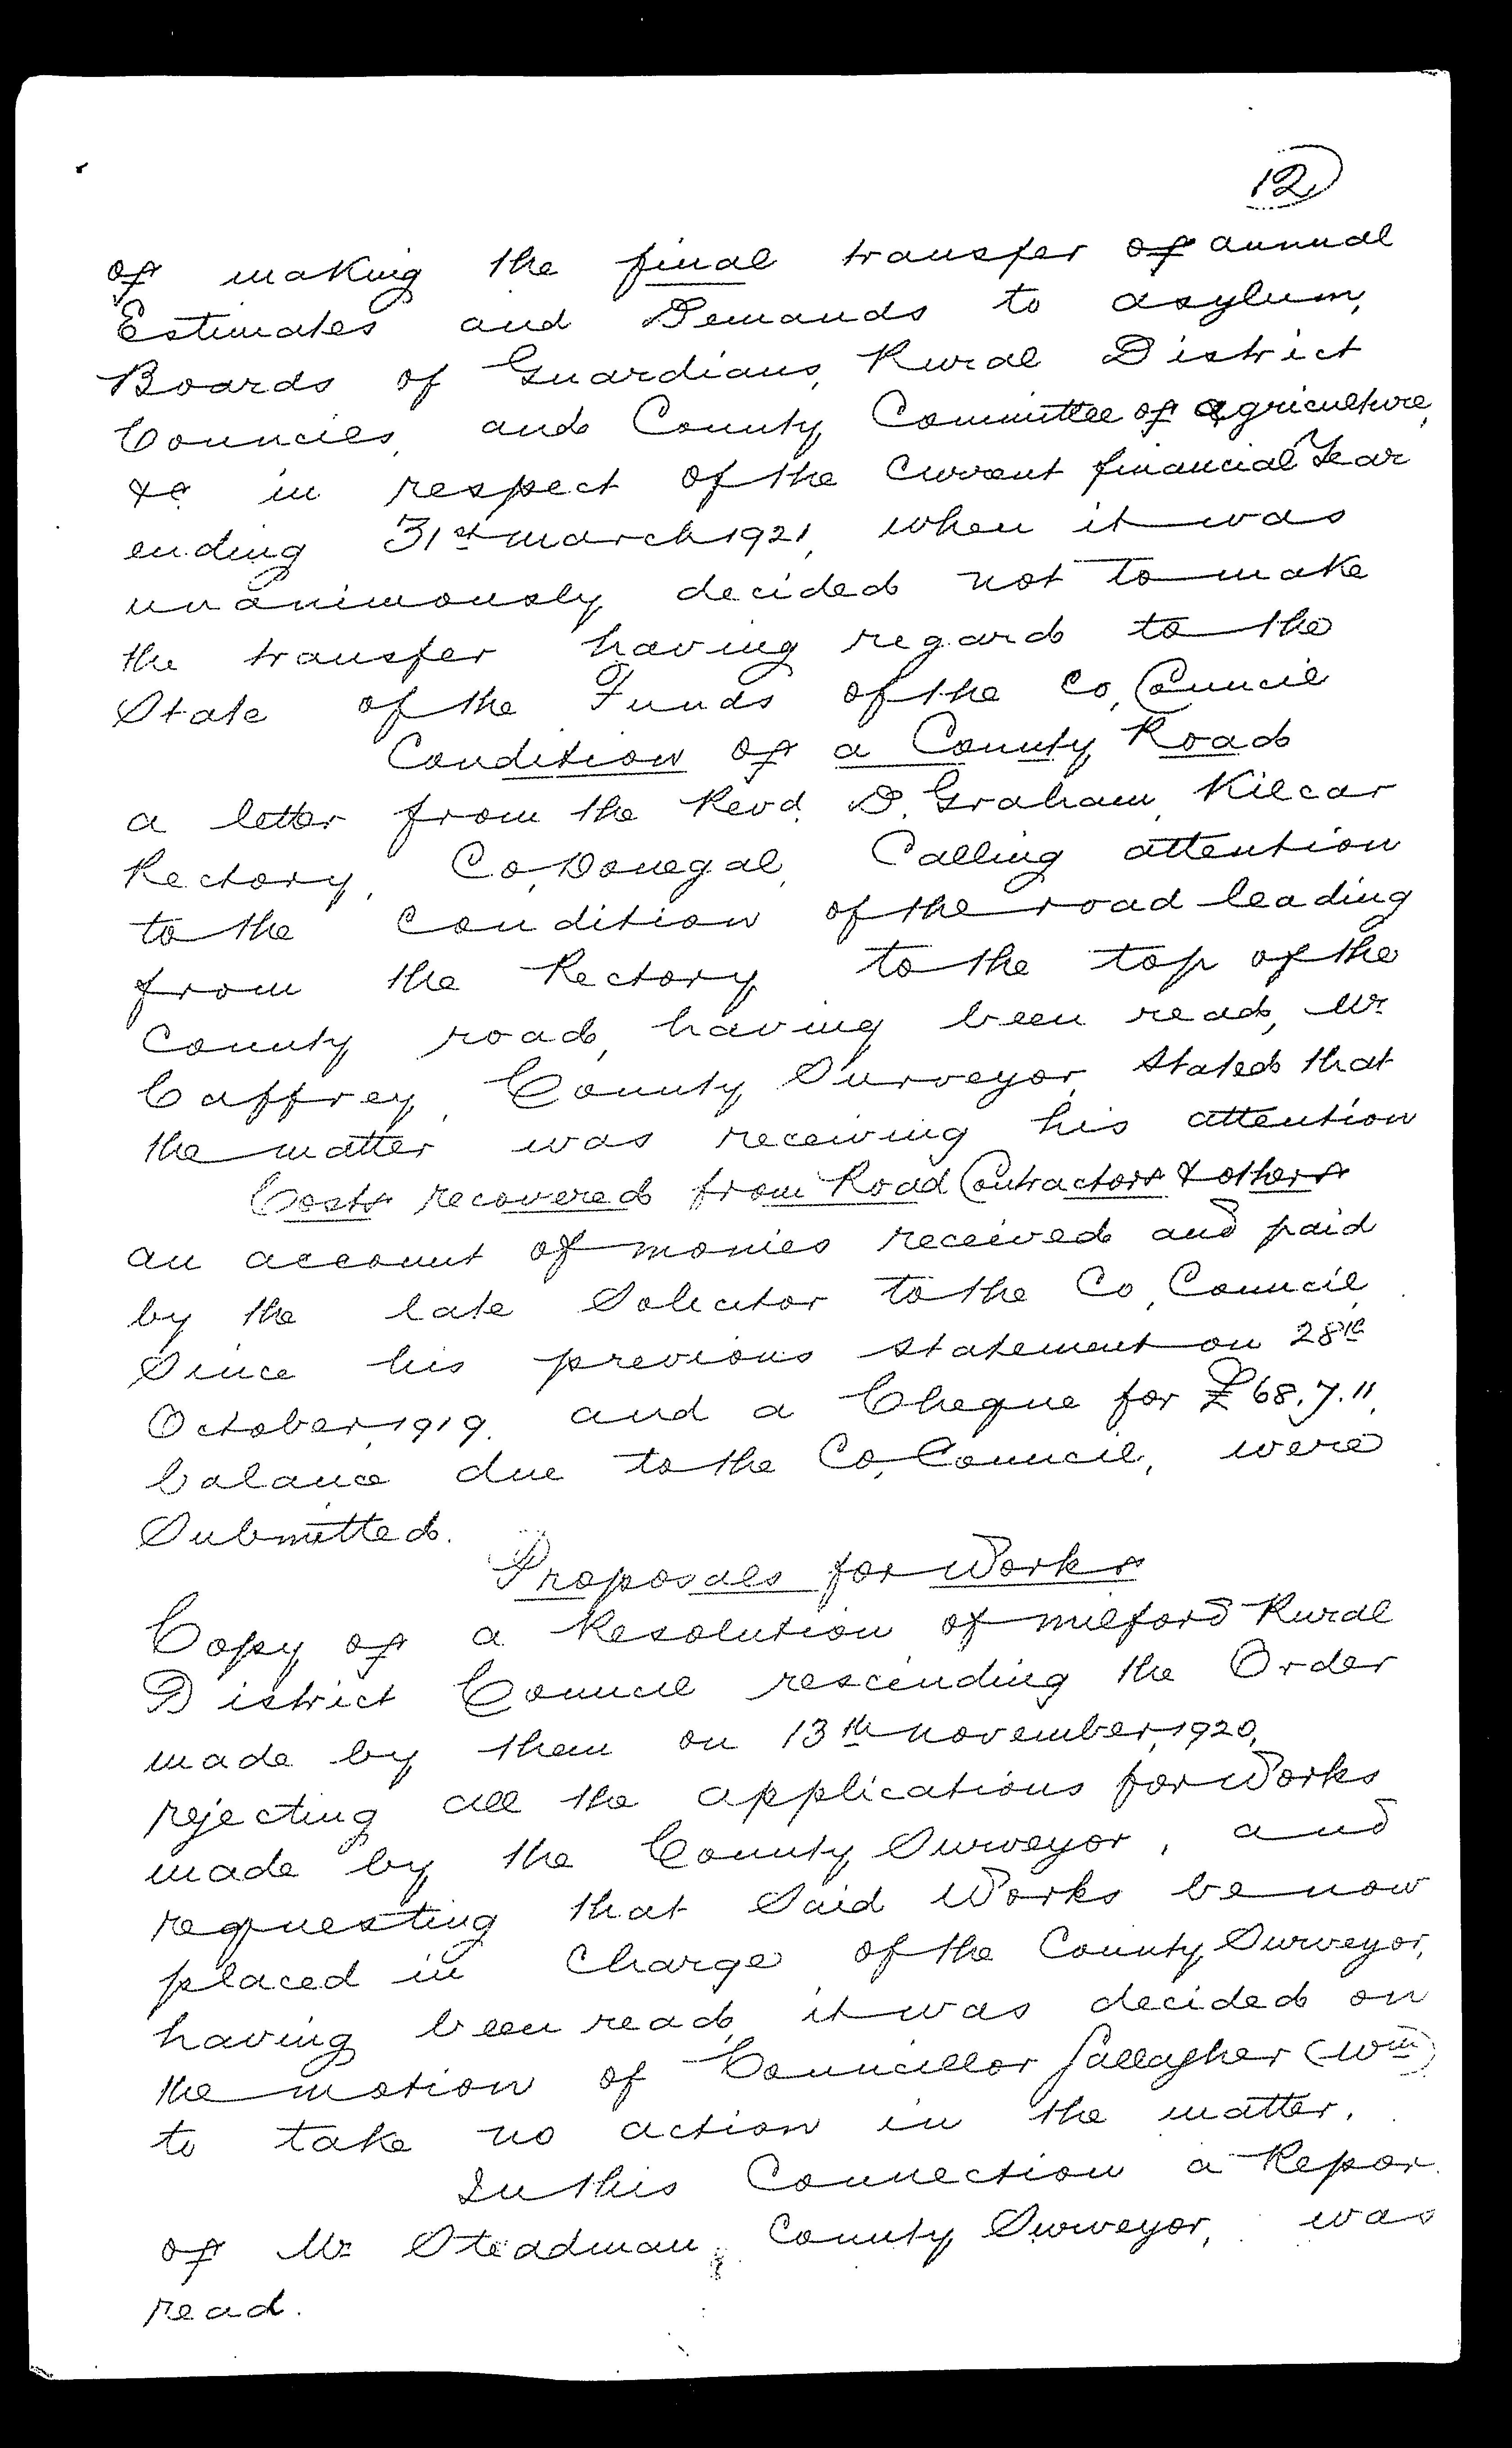 12
of making the final transfer of annual
Estimates and Demands to asylum,
Boards of Guardians, Rural District
Councils, and County Committee of agriculture,
&c. in respect of the Current financial Year
ending 31st march 1921, when it was
unanimously decided not to make
the transfer having regard to the
State of the Funds of the Co, Council
Condition of a County Road
a letter from the Revd. D. Graham, Kilcar
Rectory, Co, Donegal, Calling attention
to the Condition of the road leading
from the Rectory to the top of the
County road, having been read, Mr
Caffrey, County Surveyor, stated that
the matter was receiving his attention
Costs recovered from Road Contractors & others
an account of monies received and paid
by the late Solicitor to the Co, Council
Since his previous statement on 28th
October, 1919. and a Cheque for £68.7.11,
balance due to the Co, Council, were
Submitted.
Proposals for Works
Copy of a Resolution of milford Rural
District Council rescinding the Order
made by them on 13th november, 1920,
rejecting all the applications for Works
made by the County Surveyor, and
requesting that Said Works be now
placed in Charge of the County Surveyor,
having been read, it was decided on
the motion of Councillor Gallagher (Wm)
to take no action in the matter.
In this Connection a Repor
of Mr Steadman, County Surveyor, was
read.